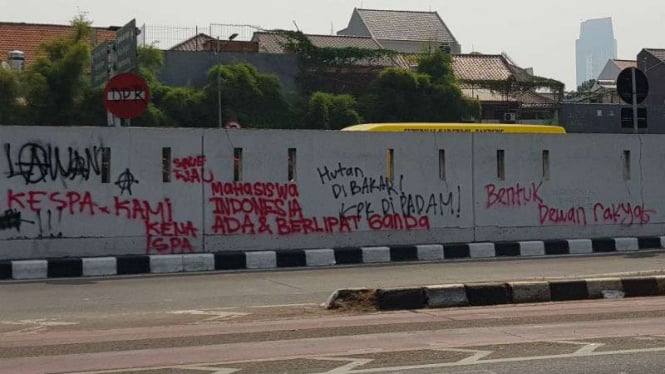 DPR
LAWAN
KESPA-KAMI
KENA
ISPA
SAVE
RIAU
MAHASISWA
INDONESIA
ADA & BERLIPAT GANDA
Hutan
DI BAKAR
KPK DI PADAM!
BENTUK
DEWAN rakyat